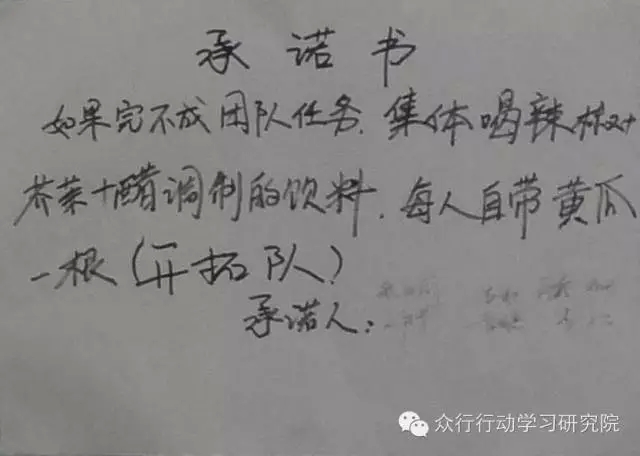 承诺书
如果完不成团队任务.集体喝辣椒+
芥菜+醋调制的饮料.每人自带黄瓜
一根(开拓队)
承诺人:
众行行动学习研究院